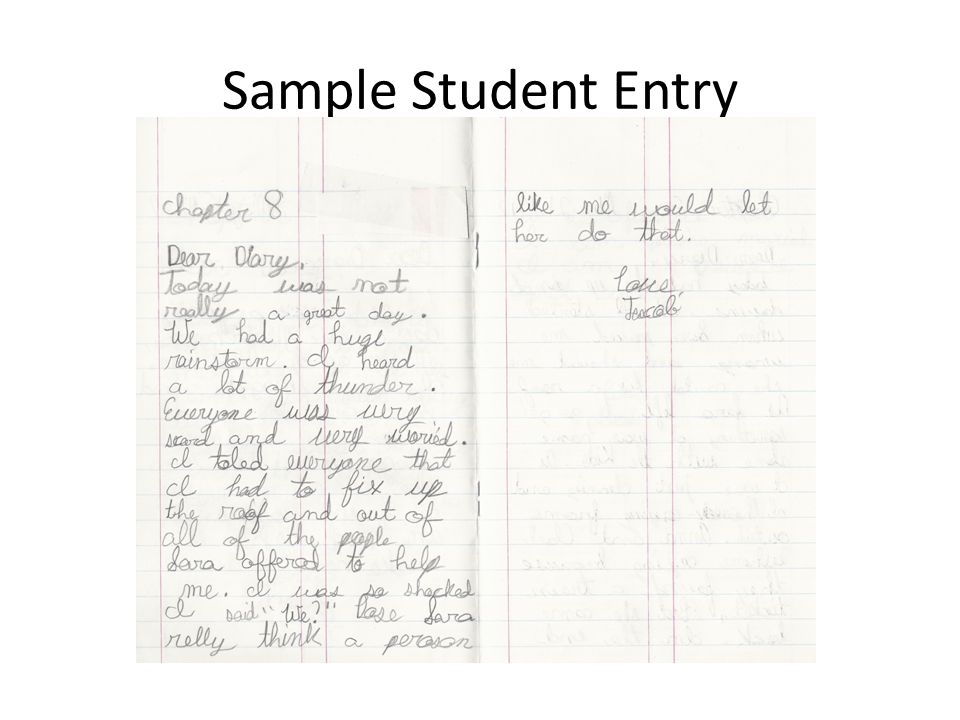 Sample Student Entry
Chapter 8
Dear Diary,
Today was not
really a great day.
We had a huge
rainstorm. I heard
a lot of thunder.
Everyone was very
scard and very woried.
I toled everyone that
I had to fix up
the roof and out of
all of the people
Sara offered to help
me. I was so shocked
I said "We?" Dose Sara
relly think a person
like me would let
her do that.
Love,
Jacob